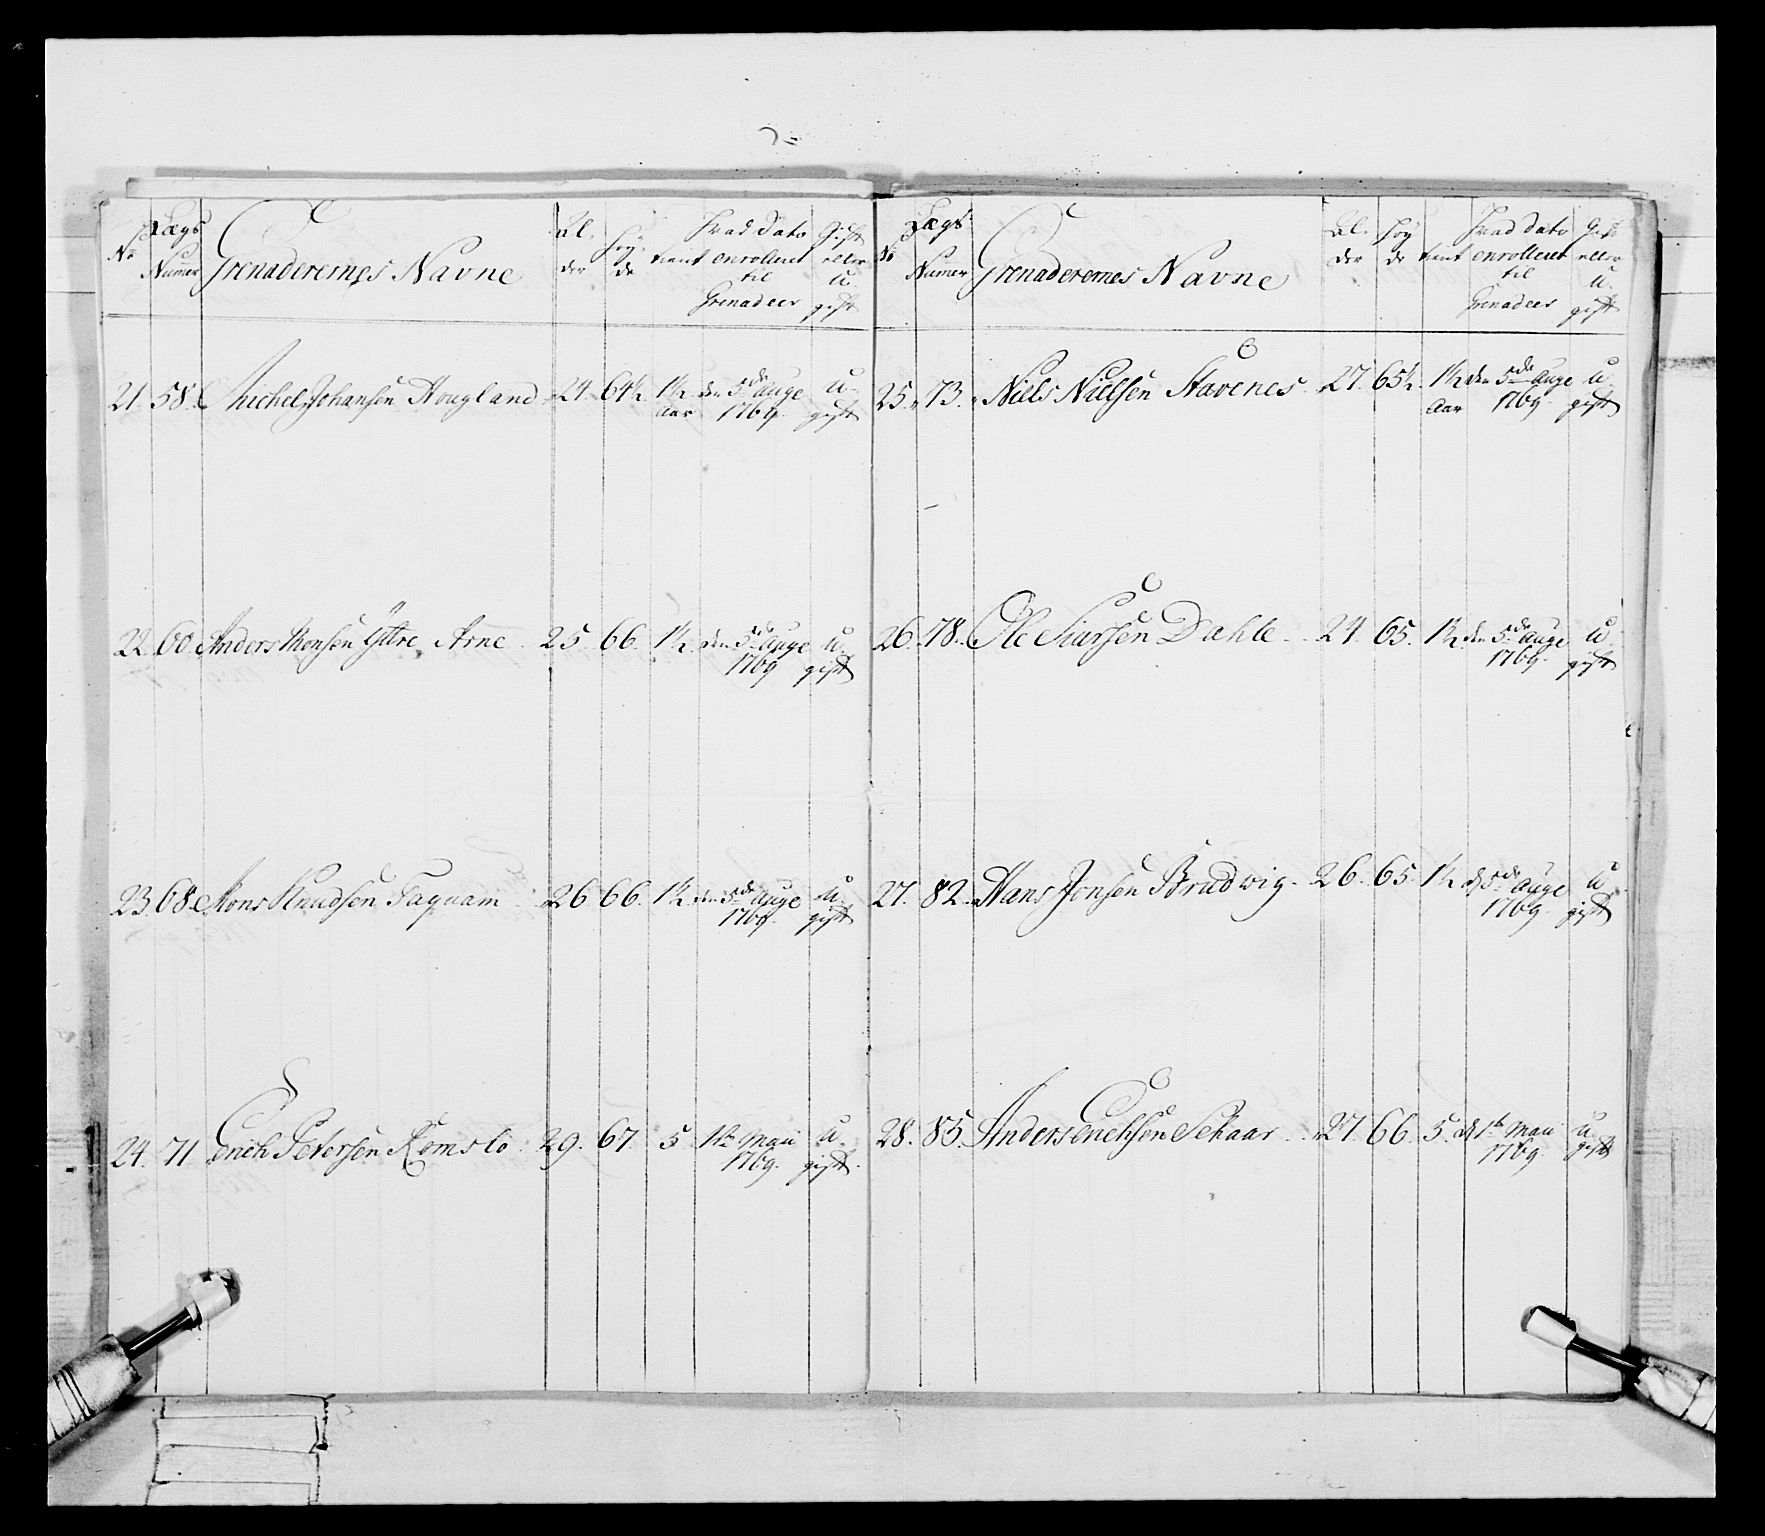 No Lægs Numer Grenaderernes Navne Al- der Høy- de tient Hvad dato enrolleret til Grenadeer Gift eller u- gift
21. 58. Michel Johansen Hougland 24. 64½ 1½ Aar den 5de Auge 1769. u- gift
22. 60. Anders Monsen Yttre Arne 25. 66. 1½. den 5de Auge 1769 u- gift
23. 68. Mons Knudsen Taquam 26. 66. 1½. den 5de Auge 1769. u- gift
24. 71. Erich Petersen Romslo 29. 67. 5. 1te Maii 1769. u- gift.
No Lægs Numer Grenaderernes Navne Al- der Høy de tient Hvad dato enrolleret til Grenadeer Gift eller u- gift
25. 73. Niels Nielsen Stavenes 27. 65½. 1½ Aar den 5de Auge 1769. u- gift
26. 78. Ole Siursen Dahle 24. 65. 1½. den 5de Auge 1769. u gift
27. 82. Hans Jonsen Brudwig 26. 65. 1½ d 5de Auge 1769. u gift
28. 85. Anders Erichsen Schaar 27. 66. 5. d 1te Maii 1769. u- gift